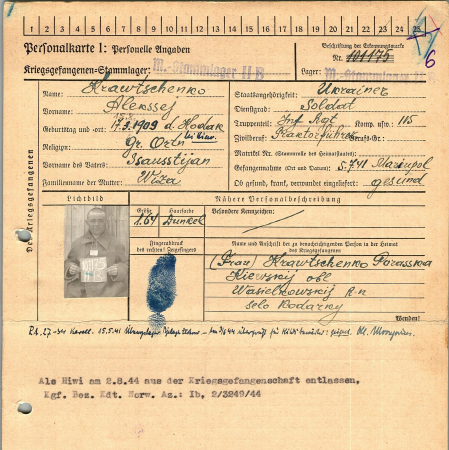 1 2 3 4 5 6 7 8 9 10 11 12 13 14 15 16 17 18 19 20 21 22 23 24 25
Personalkarte I: Personelle Angaben
Kriegsgefangenen-Stammlager: M.-Stammlager II B
Beschriftung der Erkennungsmarke
Nr. 101175
Lager: M.-Stammlager II B
6
Des Kriegsgefangenen
Name: Krawtschenko
Vorname: Alekssej
Geburtstag und -ort: 17.3.1909 d. Hodak
Religion: gr. Ortn
Vorname des Vaters:
Familienname der Mutter:
Staatsangehörigkeit: Ukrainer
Dienstgrad: Soldat
Truppenteil: Inf Rgt Komp. usw.: 115
Zivilberuf: Traktorführer Berufs-Gr.:
Matrikel Nr. (Stammrolle des Heimatstaates):
Gefangennahme (Ort und Datum): 5.7.41 Mariupol
Ob gesund, krank, verwundet eingeliefert: gesund
Lichtbild
Nähere Personalbeschreibung
Größe
1.64
Haarfarbe
Dunkel
Besondere Kennzeichen:
Fingerabdruck
des rechten! Zeigefingers
Name und Anschrift der zu benachrichtigenden Person in der Heimat
des Kriegsgefangenen
(Frau) Krawtschenko Parasska
Kiewskij obl
Wasielkowskij R-n
selo Kodarky
Wenden!
Als Hiwi am 2.8.44 aus der Kriegsgefangenschaft entlassen,
Kgf. Bez. Kdt. Norw. Az.: Ib, 2/3249/44